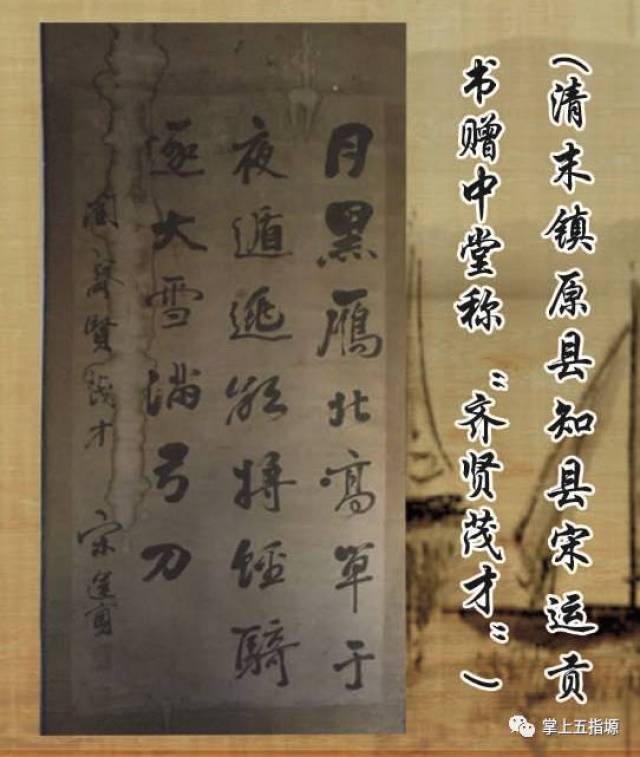 （清末镇原县知县宋运贡
书赠中堂称“齐贤茂才”）
月黑鴈北高單于
夜遁逃欲將輕騎
逐大雪滿弓刀
齊賢茂才
宋運貢
掌上五指塬